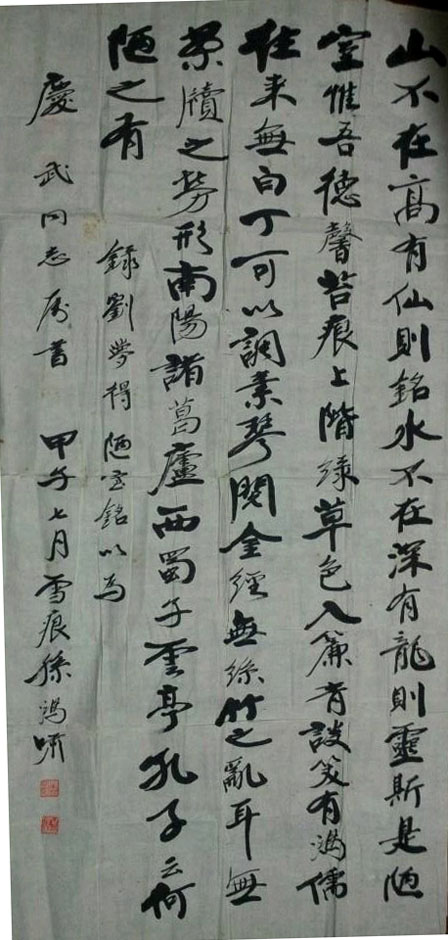 山不在高有仙則銘水不在深有龍則靈斯是陋
室惟吾德馨苔痕上階綠草色入簾青談笑有鴻儒
往来無白丁可以調素琴閱金經無絲竹之亂耳無
案牘之勞形南陽諸葛廬西蜀子雲亭孔子云何
陋之有
錄劉夢得陋室銘以為
慶武同志属書 甲午七月雪痕孫鴻